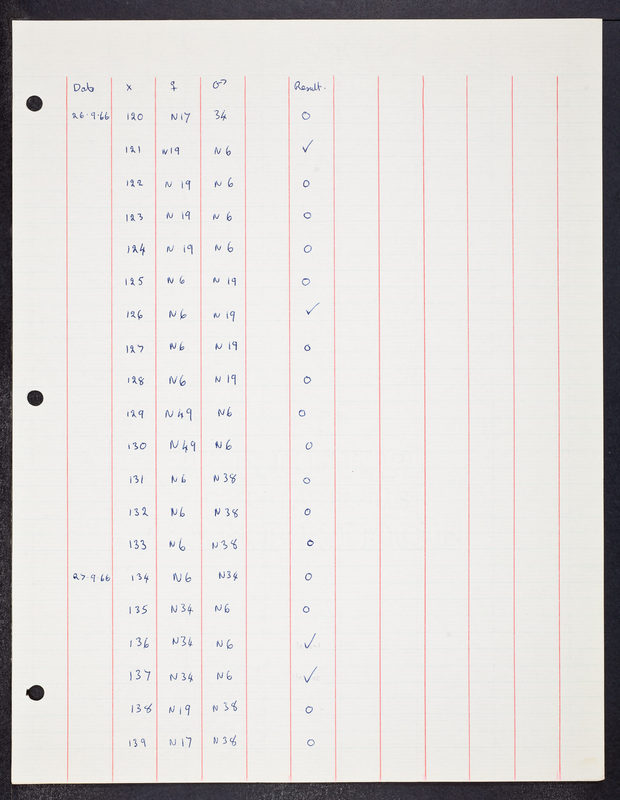 Date x ♀ ♂ Result.
26.9.66 120 N17 34 0
121 N19 N6 ✓
122 N19 N6 0
123 N19 N6 0
124 N19 N6 0
125 N6 N19 0
126 N6 N19 ✓
127 N6 N19 0
128 N6 N19 0
129 N49 N6 0
130 N49 N6 0
131 N6 N38 0
132 N6 N38 0
133 N6 N38 0
27.9.66 134 N6 N34 0
135 N34 N6 0
136 N34 N6 ✓
137 N34 N6 ✓
138 N19 N38 0
139 N17 N38 0